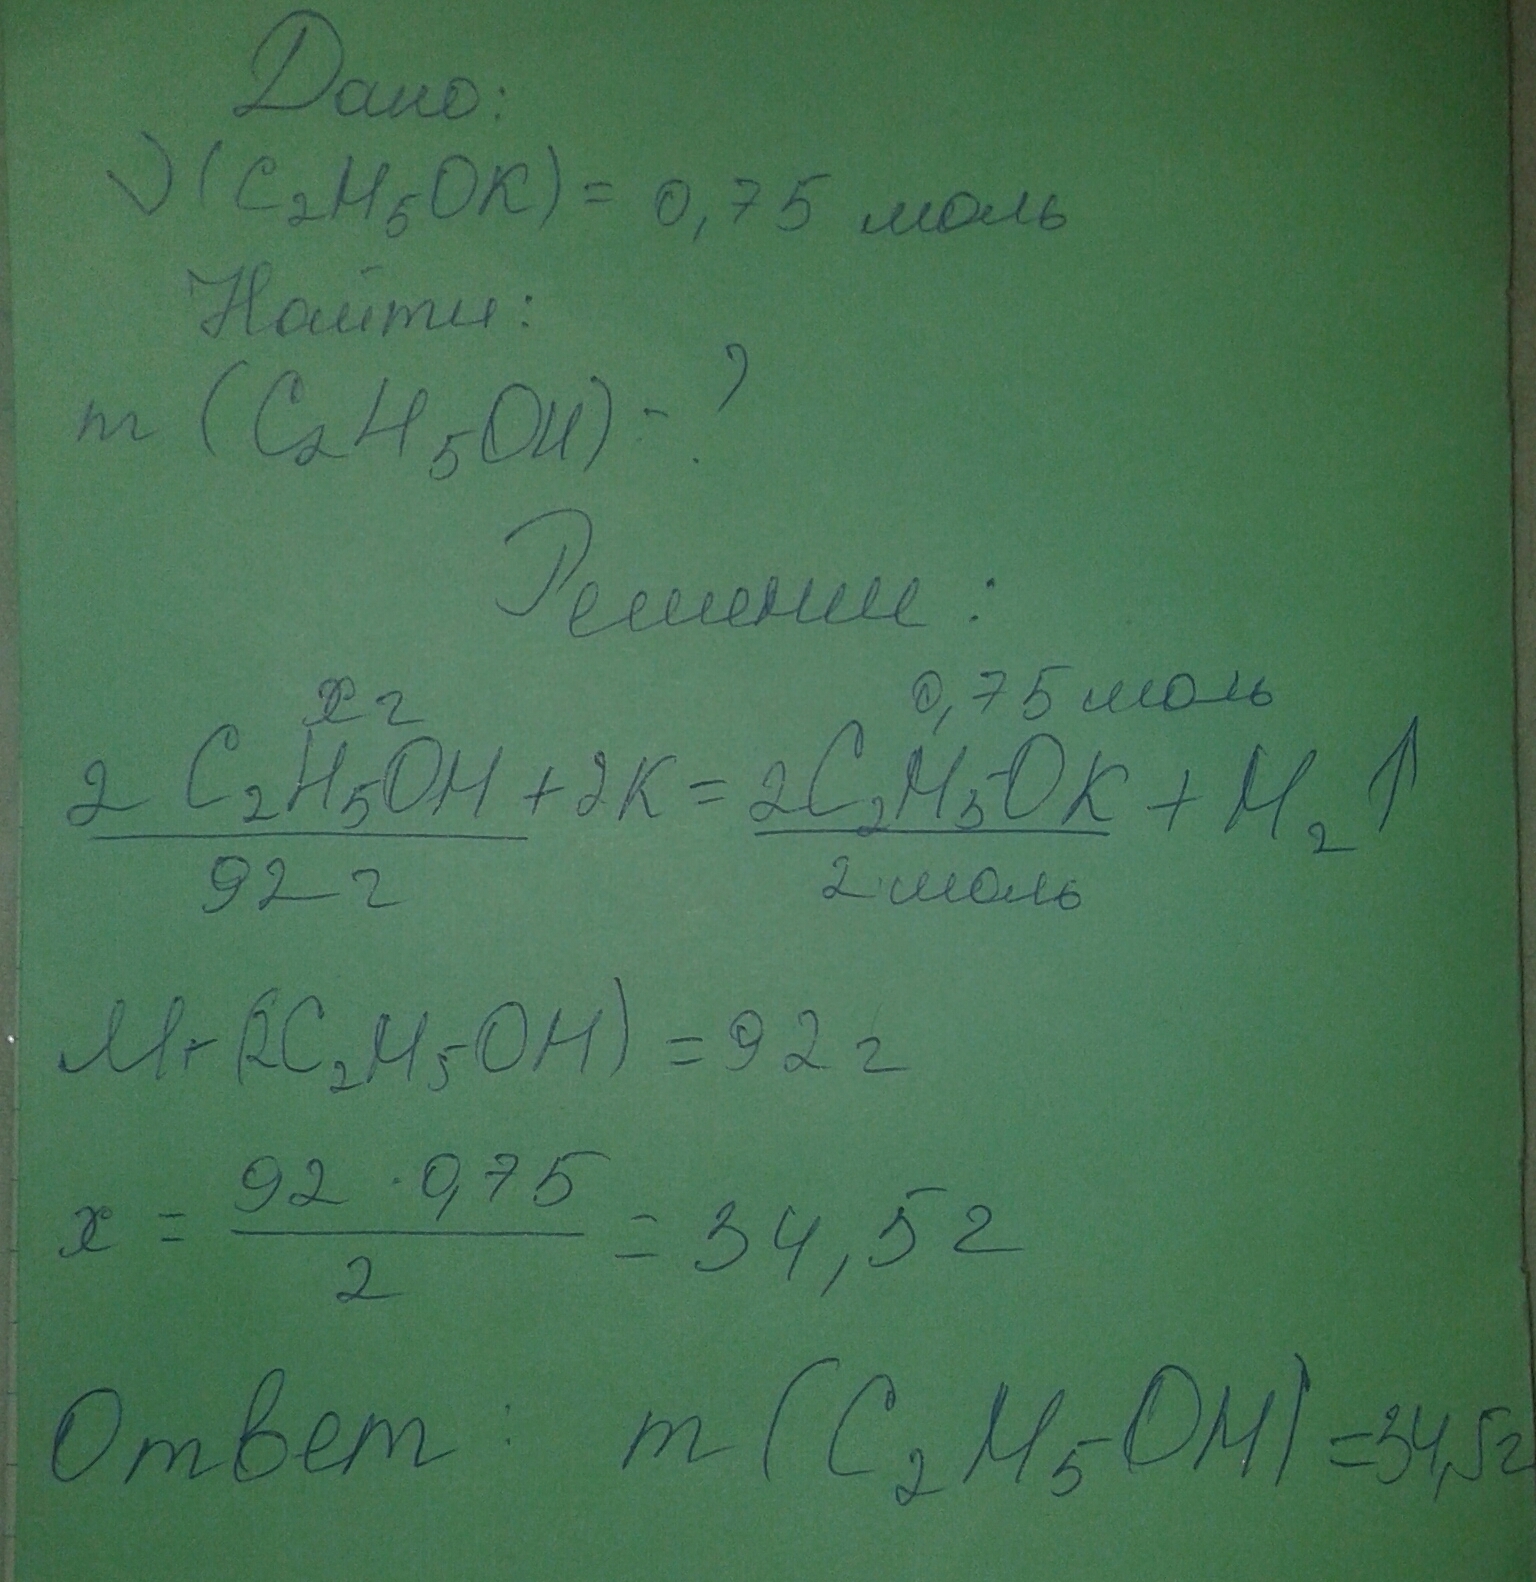 Дано:
ν(C₂H₅OK) = 0,75 моль
Найти:
m (C₂H₅OH) - ?
Решение:
x г 0,75 моль
2 C₂H₅OH + 2K = 2C₂H₅OK + H₂ ↑
92 г 2 моль
Mr (2C₂H₅OH) = 92 г
x = 92 · 0,75 / 2 = 34,5 г
Ответ: m (C₂H₅OH) = 34,5 г